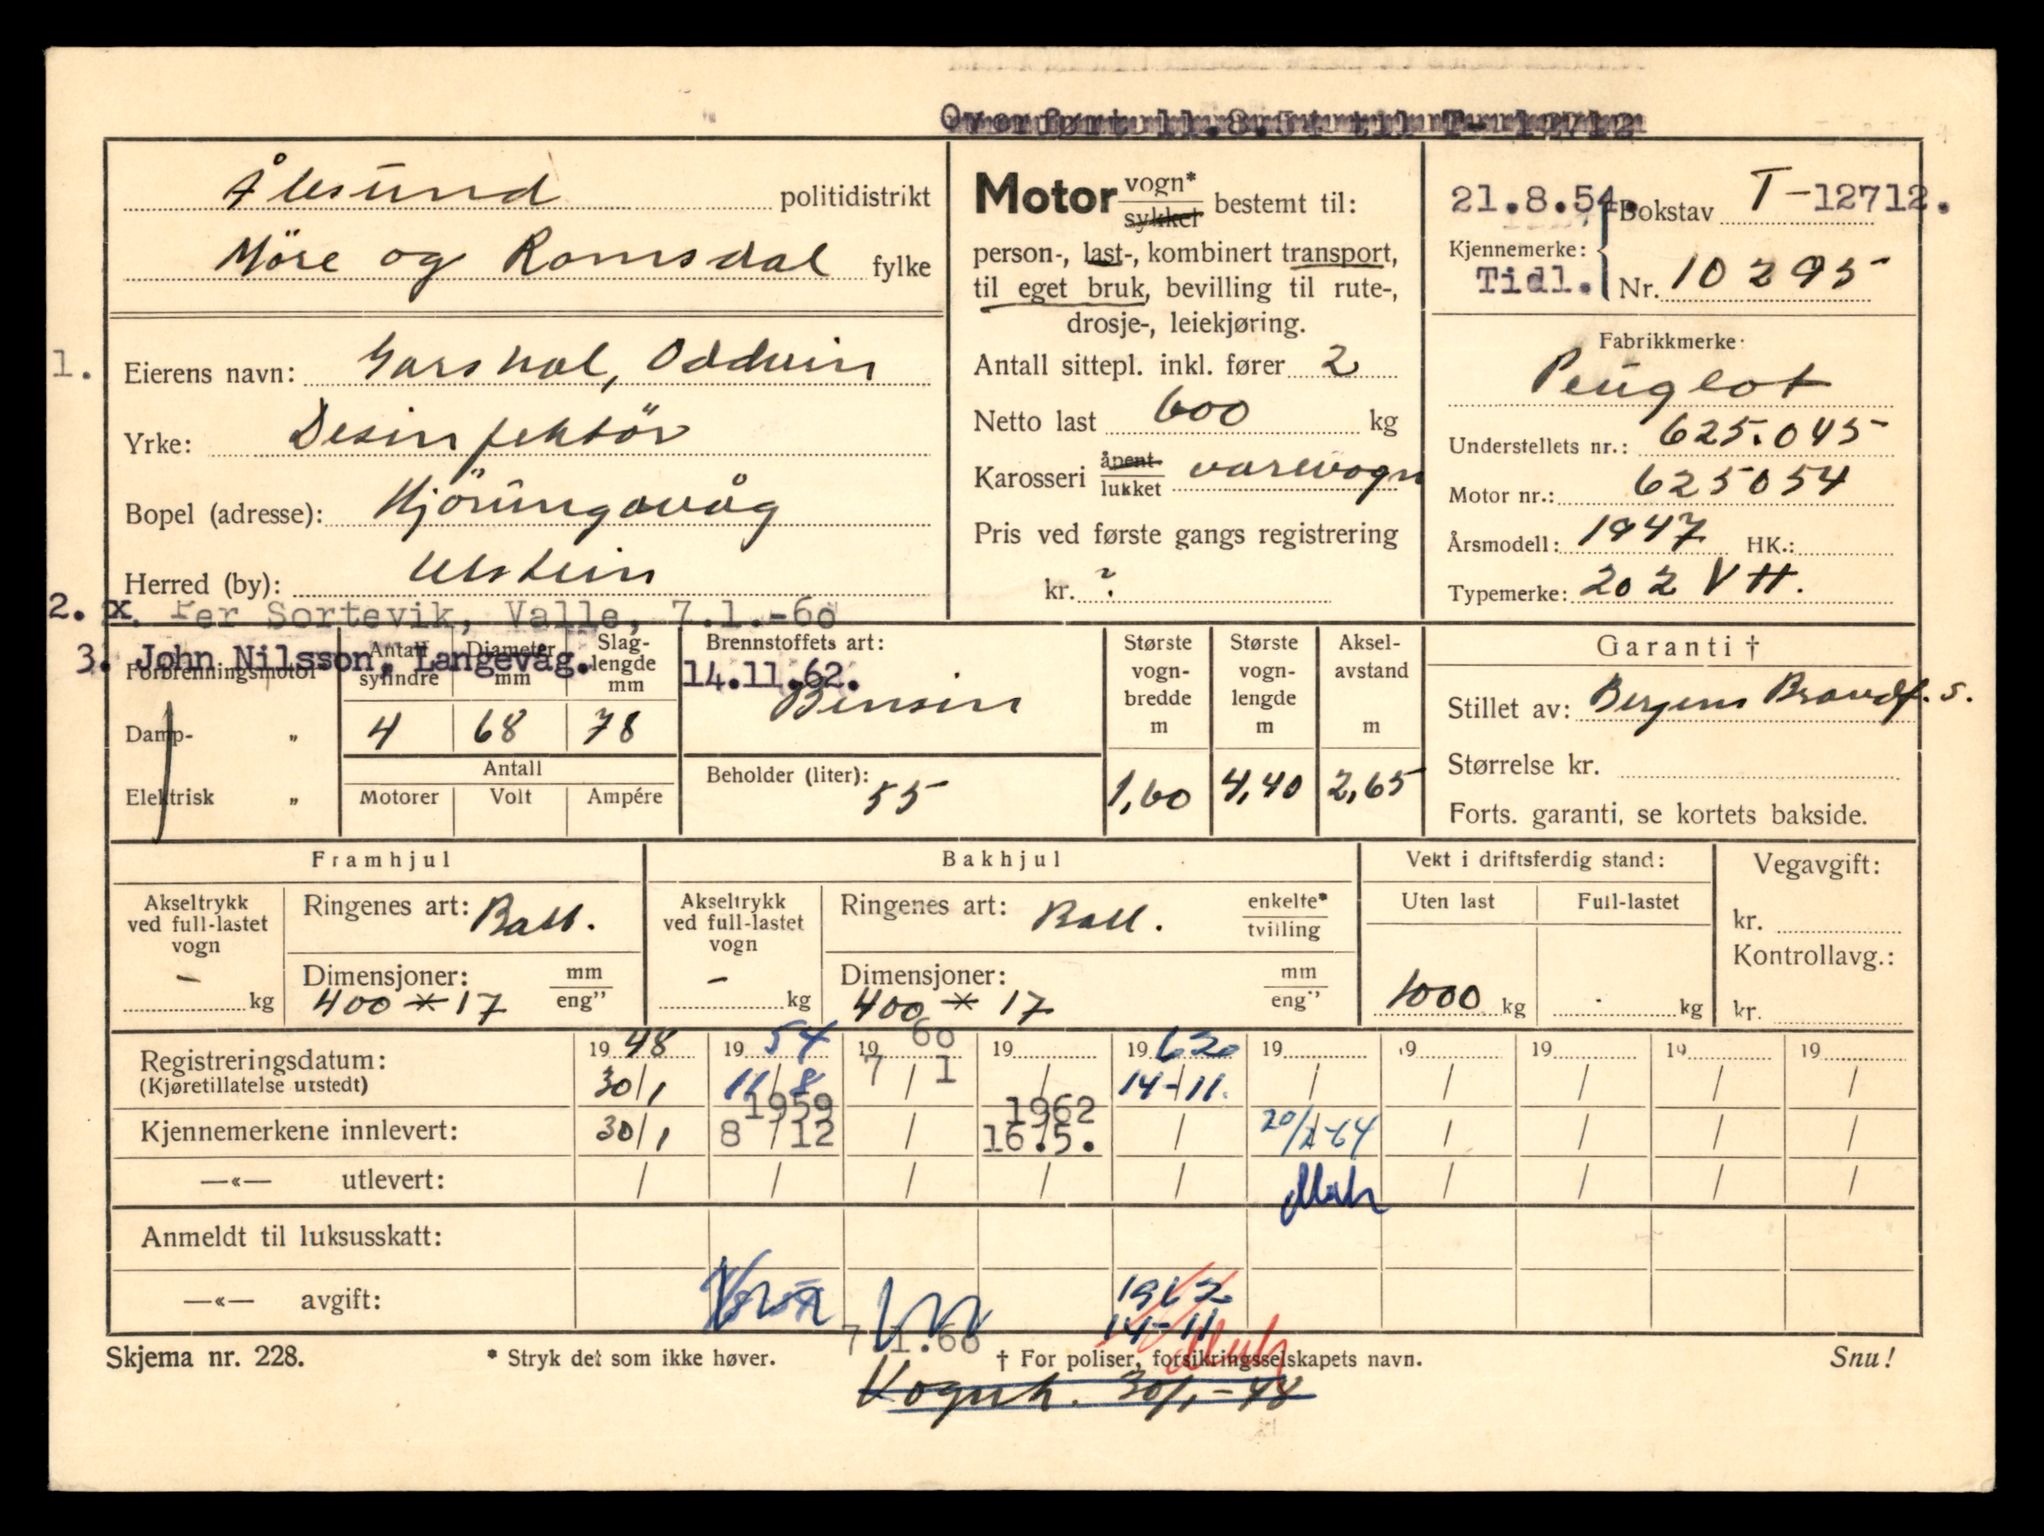 Overført 11.8.54 til T-12712
Ålesund politidistrikt
Möre og Romsdal fylke
1. Eierens navn: Garshol, Oddvin
Yrke: Desinfektör
Bopel (adresse): Hjörungavåg
Herred (by): Ulstein
2. x. Per Sortevik, Valle, 7.1.-60
3. John Nilsson, Langevåg. 14.11.62.
Motor vogn* sykkel bestemt til:
person-, last-, kombinert transport,
til eget bruk, bevilling til rute-,
drosje-, leiekjøring.
Antall sittepl. inkl. fører 2
Netto last 600 kg
Karosseri åpent lukket varevogn
Pris ved første gangs registrering
kr. ?
21.8.54. Bokstav T-12712.
Kjennemerke:
Tidl. Nr. 10295
Fabrikkmerke:
Peugeot
Understellets nr.: 625.045
Motor nr.: 625054
Årsmodell: 1947 HK.:
Typemerke: 202 VH.
Forbrenningsmotor
Damp- „
Elektrisk „
Antall sylindre
Diameter mm
Slaglengde mm
4 68 78
Antall
Motorer Volt Ampére
Brennstoffets art:
Bensin
Beholder (liter): 55
Største vognbredde m
1,60
Største vognlengde m
4,40
Akselavstand m
2,65
Garanti †
Stillet av: Bergens Brandf. s.
Størrelse kr.
Forts. garanti, se kortets bakside.
Framhjul
Akseltrykk ved full-lastet vogn
- kg
Ringenes art: Ball.
Dimensjoner: mm eng"
400 * 17
Bakhjul
Akseltrykk ved full-lastet vogn
- kg
Ringenes art: Ball. enkelte* tvilling
Dimensjoner: mm eng"
400 * 17
Vekt i driftsferdig stand:
Uten last Full-lastet
1000 kg kg
Vegavgift:
kr.
Kontrollavg.:
kr.
Registreringsdatum: 1948 1954 1960 19 1962 19 19 19 19 19
(Kjøretillatelse utstedt) 30/1 11/8 7/1 / 14-11. / / / / /
1959 1962
Kjennemerkene innlevert: 30/1 8/12 / 16.5. / 20/2-64 / / / /
—«— utlevert: / / / / / / / / /
Anmeldt til luksusskatt:
—«— avgift: 1962
14-11
7 1.60
Skjema nr. 228.
* Stryk det som ikke høver.
† For poliser, forsikringsselskapets navn.
Snu!
Vognk. 30/1-48